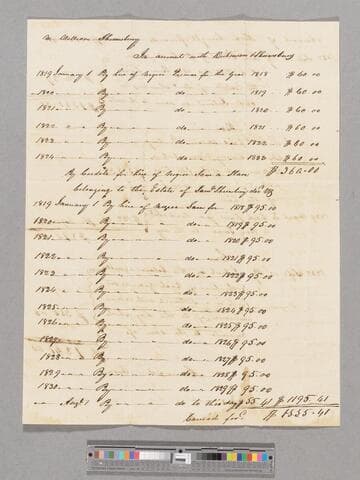 Mr William Shrewsbury
In account with Dickinson & Shrewsbury
1819 January 1 By hire of Negro for the Year 1818 $ 60.00
1820 By do 1819 $ 60.00
1821 By do 1820 $ 60.00
1822 By do 1821 $ 60.00
1823 By do 1822 $ 60.00
1824 By do 1823 $ 60.00
By for hire of Negro Sam a Slave $ 360.00
belonging to the Estate of Shrewsbury
1819 January 1 By hire of Negro Sam for 1818 $ 95.00
1820 By do 1819 $ 95.00
1821 By do 1820 $ 95.00
1822 By do 1821 $ 95.00
1823 By do 1822 $ 95.00
1824 By do 1823 $ 95.00
1825 By do 1824 $ 95.00
1826 By do 1825 $ 95.00
1827 By do 1826 $ 95.00
1828 By do 1827 $ 95.00
1829 By do 1828 $ 95.00
1830 By do 1829 $ 95.00
Augt 1 By do to this day $ 55.41 $ 1195.41
Carried ford $ 1555.41